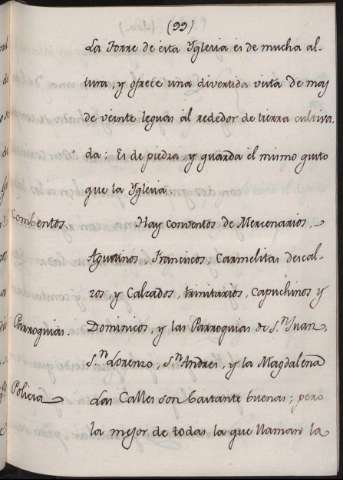 (99)
La Torre de esta Yglesia es de mucha al-
tura, y ofrece una divertida vista de mas
de veinte leguas al rededor de tierra cultiva-
da: Es de piedra y guarda el mismo gusto
que la Yglesia.
Combentos. Hay conventos de Mercenarios,
Agustinos, Franciscos, Carmelitas descal-
zos y Calzados, trinitarios, Capuchinos y
Parroquias. Dominicos, y las Parroquias de S.n Juan,
S.n Lorenzo, S.n Andres, y la Magdalena
Policia las Calles son bastante buenas; pero
la mejor de todas la que llaman la